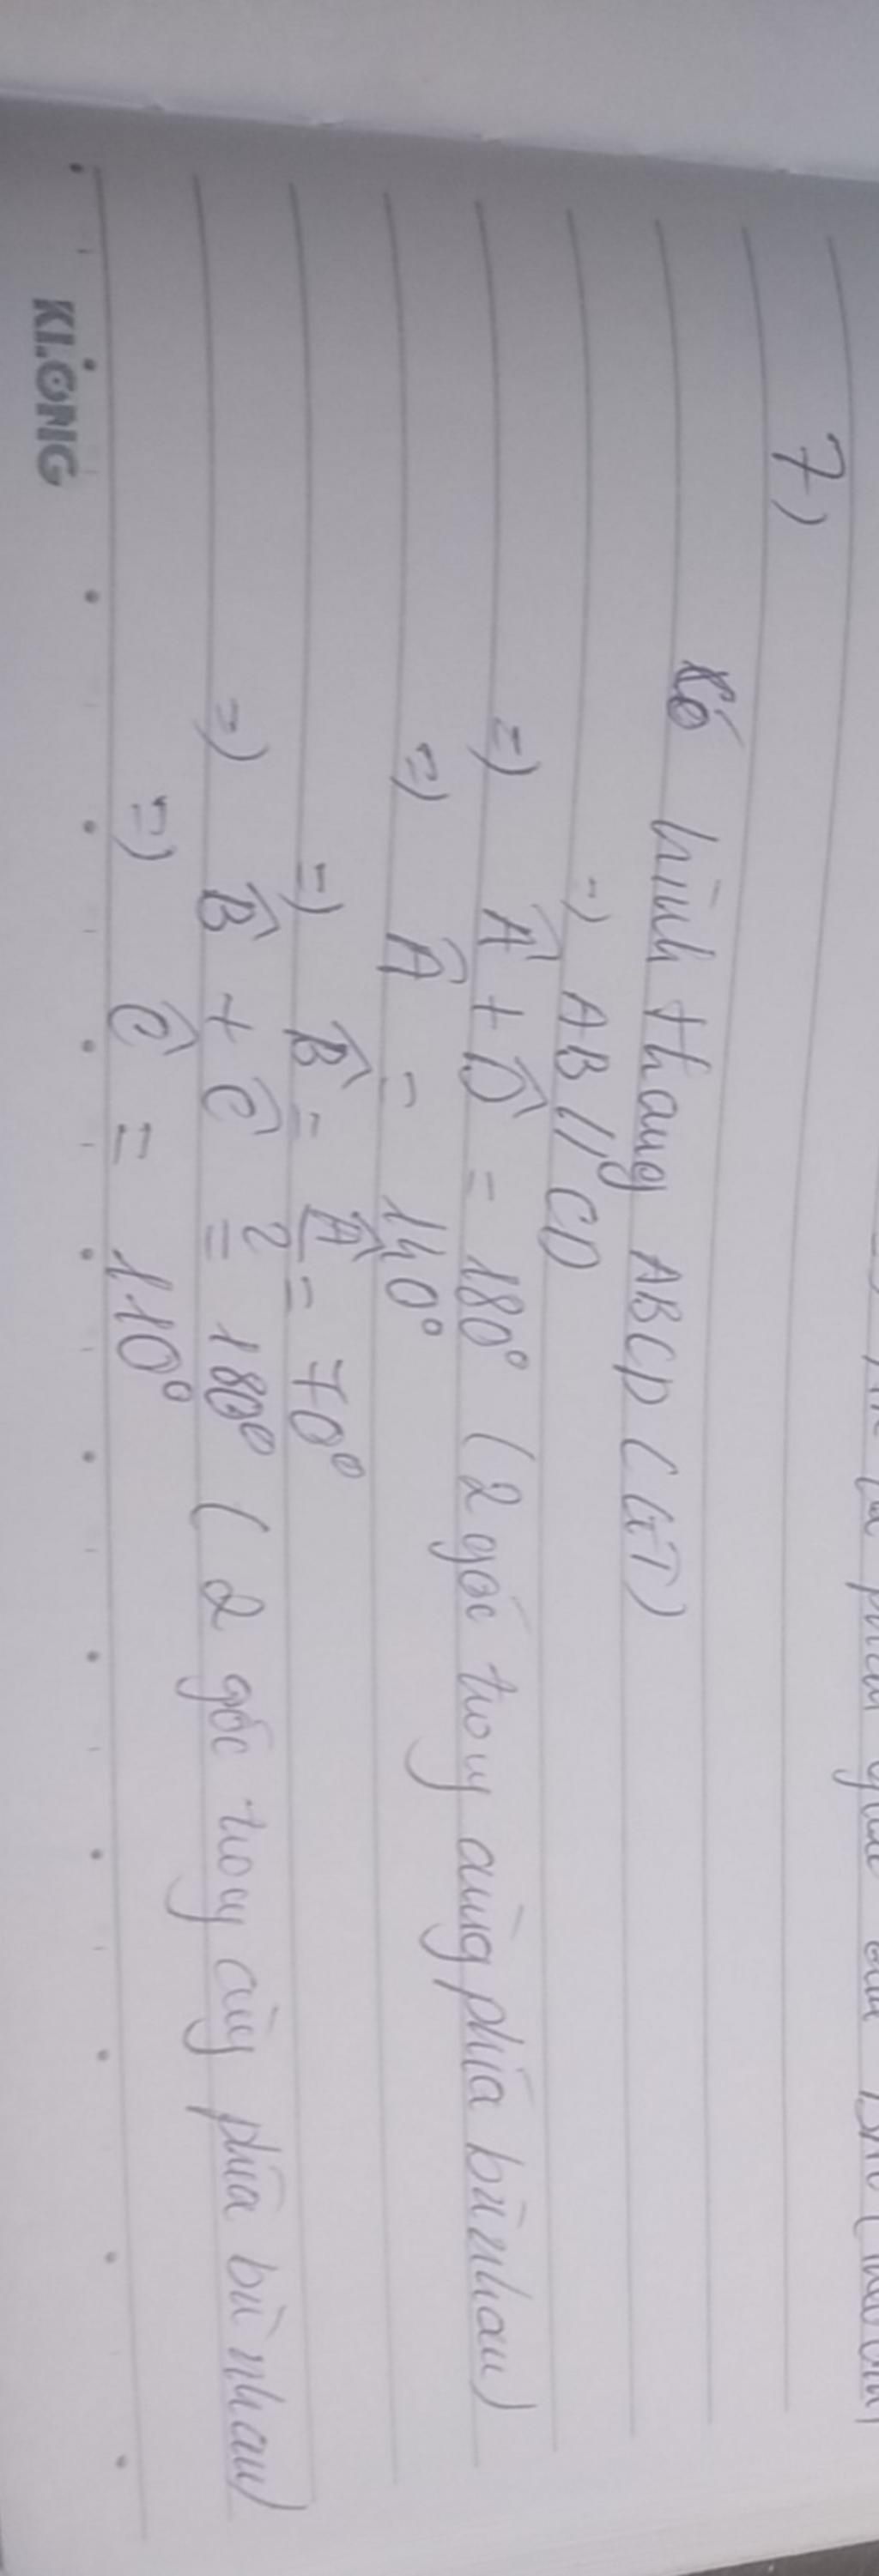 7)
Có hình thang ABCD (GT)
=) AB // CD
=) Â + D̂ = 180° (2 góc trong cùng phía bù nhau)
=) Â = 140°
=) B̂ = Â/2 = 70°
=) B̂ + Ĉ = 180° (2 góc trong cùng phía bù nhau)
=) Ĉ = 110°
KLONG